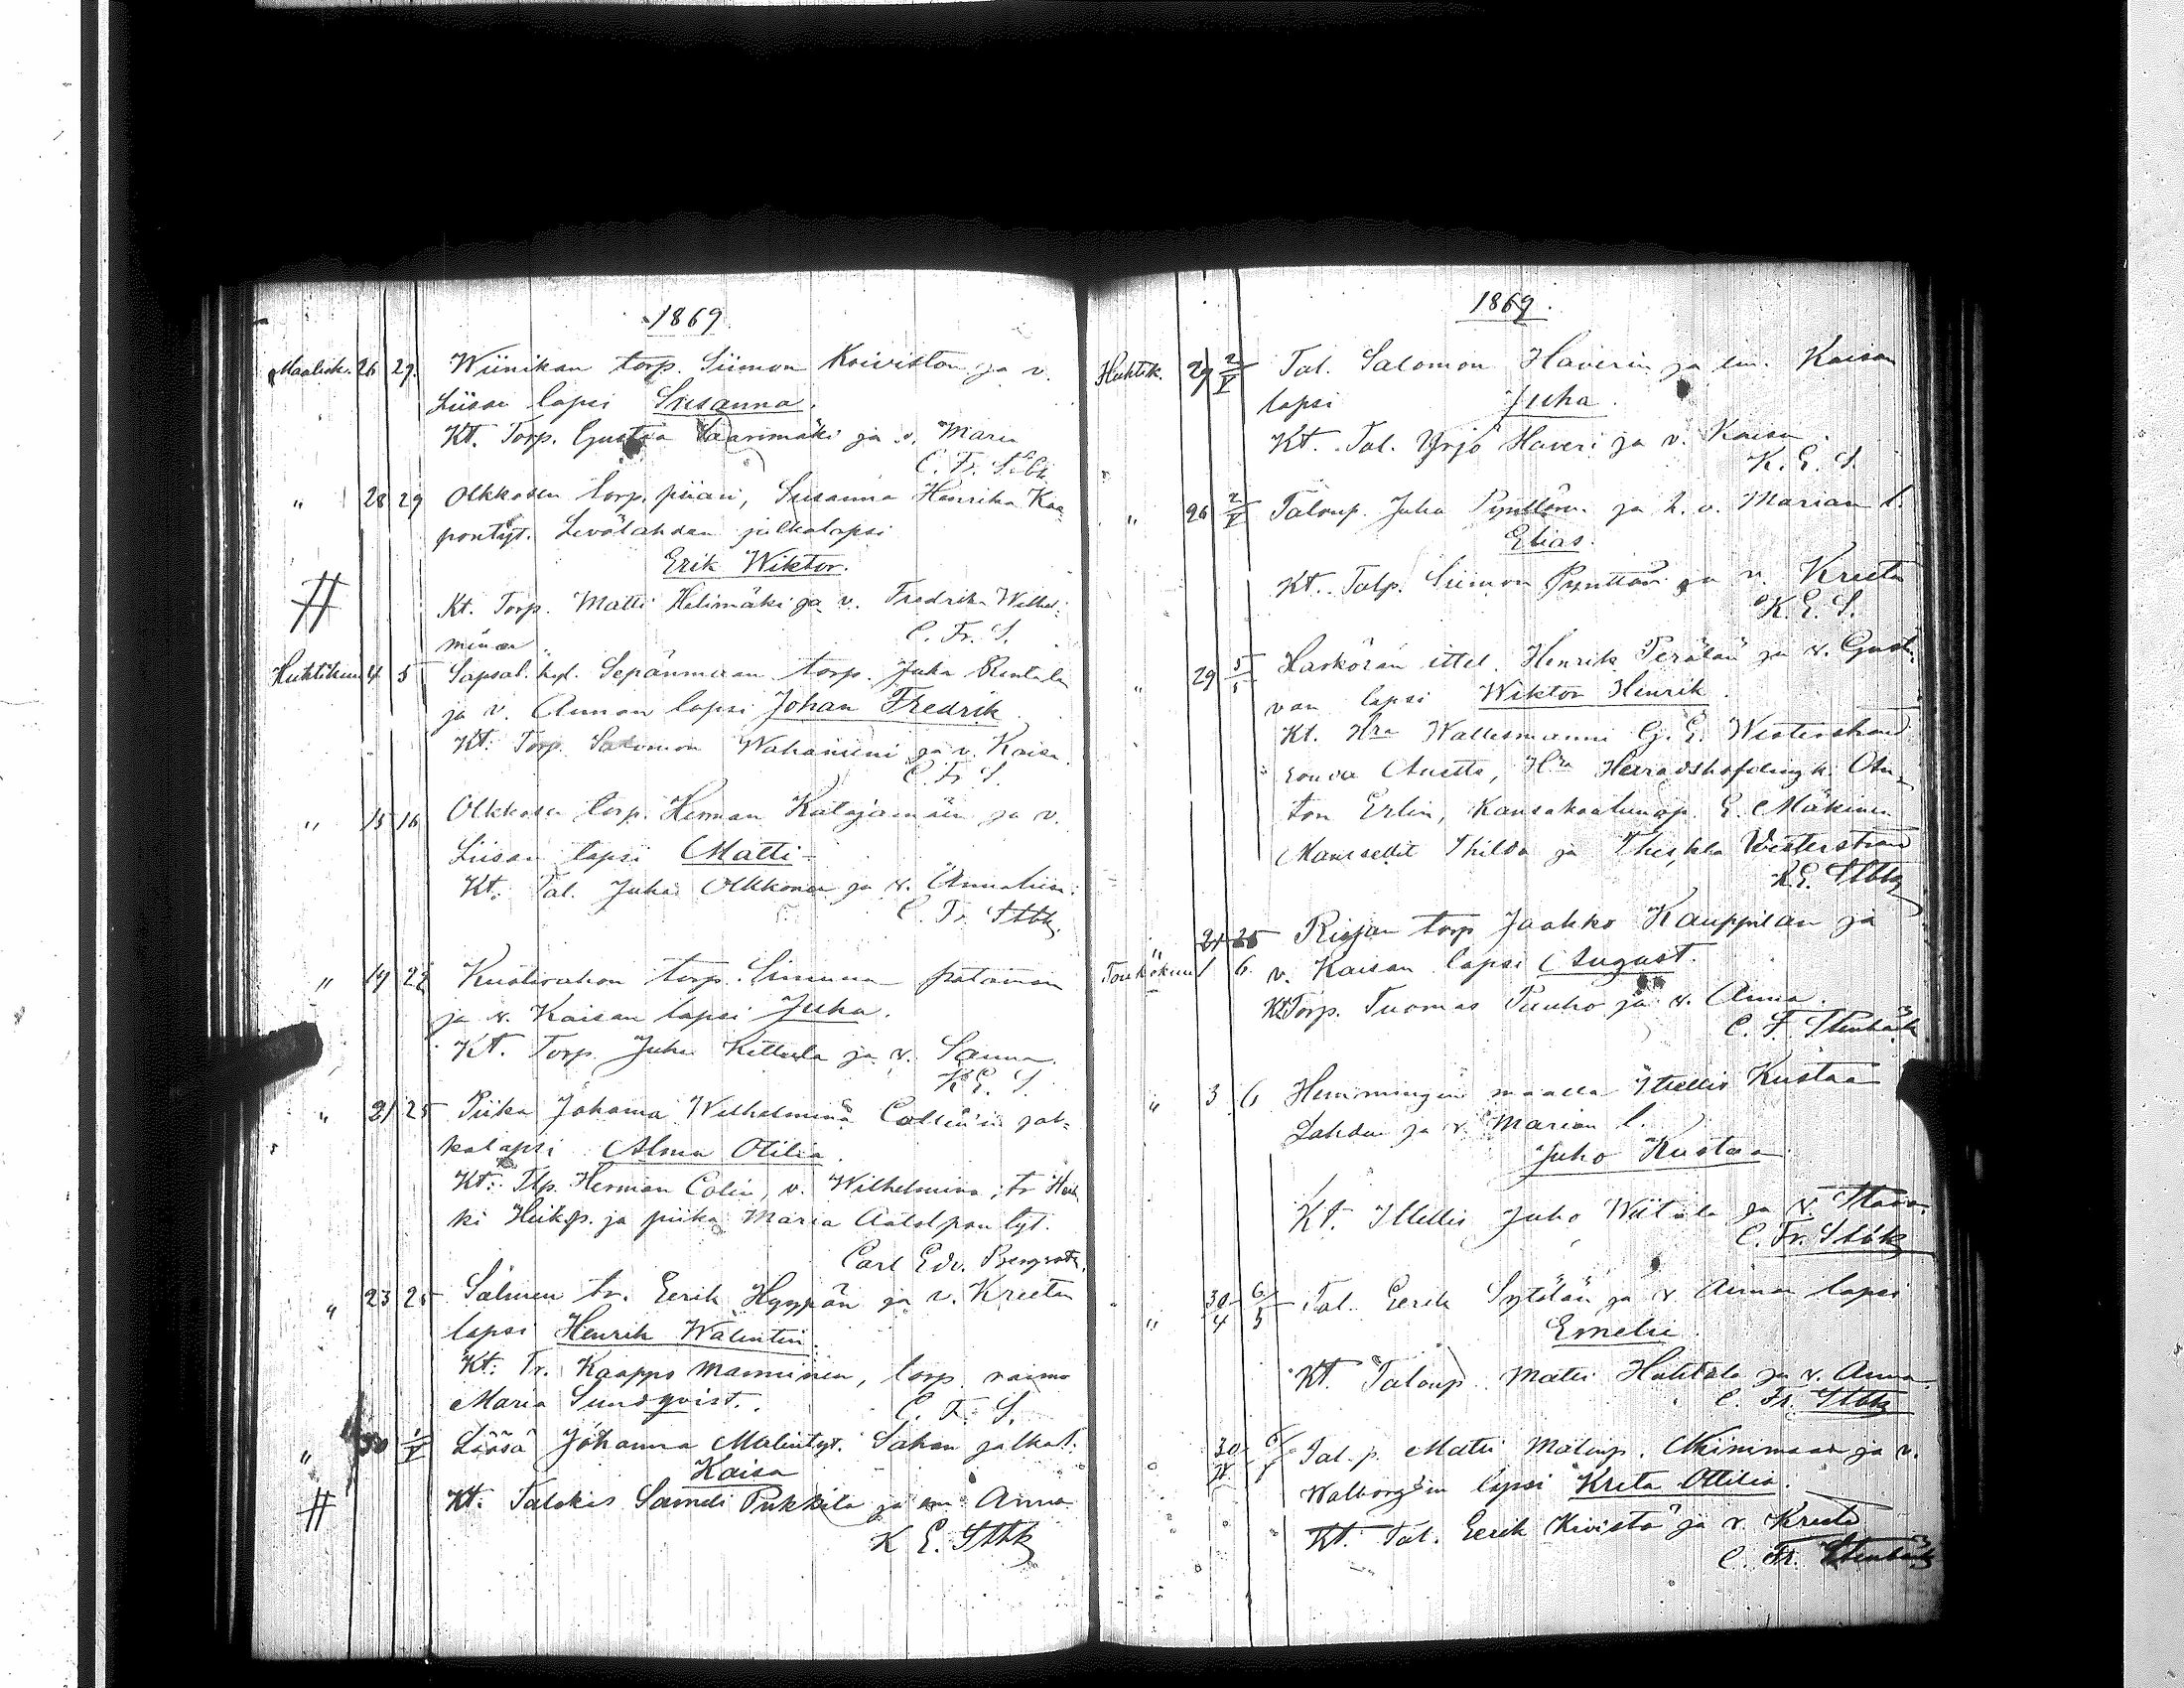 1869
Maalisk. 26 29. Wiinikan torp. Siimon Koiviston ja v.
Liisan lapsi Susanna.
Kt. Torp. Gustaa Saarimäki ja v. Maria
C. Fr. Stbk
" 28 29 Olkkosen torp. piian, Susanna Henrika Kaa-
pontyt. Levölahden jalkalapsi
Erik Wiktor.
Kt. Torp. Matti Helimäki ja v. Fredrika Wilhel-
minan
C. Fr. S.
Huhtikuu 4 5 Lapsal. kyl. Sepänmaan torp. Juha Rintalan
ja v. Annan lapsi Johan Fredrik
Kt. Torp. Salomon Wahaniemi ja v. Kaisa.
C. Fr. S.
" 15 16 Olkkosen torp. Herman Katajamäen ja v.
Liisan lapsi Matti
Kt: Tal. Juha Olkkonen ja v. Annaliisa.
C. Fr. Stbk.
" 19 22 torp. Simuna
ja v. Kaisan lapsi Juha.
Kt. Torp. Juha Kettula ja v. Sanna.
K. E. S.
" 21 25 Piika Johanna Wilhelmina Collin'in jal-
kalapsi Alma Otilia.
Kt: Tlp. Herman Colin, v. Wilhelmina, tr Heik
ki Heikp. ja piika Maria Aadolpontyt.
Carl Edv. Bergroth.
" 23 25 Salmen tr. Eerik Hyypän ja v. Kreetan
lapsi Henrik Walentin.
Kt: Tr. Kaappo Manninen, torp. vaimo
Maria Sundqvist.
C. F. S.
" 30 1/V Läösä Johanna Matintyt. Sahan jalkal.
Kaisa
Kt: Talokis Sameli Pukkila ja em. Anna
K E. Stbk
1869.
Huhtik. 29 2/V Tal. Salomon Haverin ja em. Kaisan
lapsi Juha.
Kt. Tal. Yrjö Haveri ja v. Kaisa.
K. E. S.
" 26 2/V Taloup. Juha Pynttärin ja h. v. Marian l.
Elias.
Kt. Talp. Siimon Pynttäri ja v. Kreeta
K. E. S.
" 29 5/5 ittel. Henrik Perälän ja v. Gusta-
van lapsi Wiktor Henrik.
Kt. Hra Wallesmanni G. E. Westerstrand
rouva Anette, Hra Heradshöfdingk. An-
ton Erlin, Kansakoulunop. E. Mäkinen
Mamsellit Thilda ja Thekla Westerstrand
K.E. Stbk
" 21 25 Riojan torp Jaakko Kauppilan ja
Toukokuu 1 6. v. Kaisan lapsi August.
Kt Torp. Tuomas Pauho ja v. Anna.
C. F. Stenbäck
" 3 6 Hemmingin maalla Itsellis Kustaa
Lahden ja v. Marian l.
Juho Kustaa
Kt. Itsellis Juho Wiitala ja v.
C. Fr. Stbk
" 30/4 6/5 Tal. Eerik Sytelän ja v. Annan lapsi
Emelie.
Kt. Taloup. Matti Huhtala ja v. Anna.
C. Fr. Stbk
30/4 6/5 Tal. p. Matti Matinp. Niinimaan ja v.
Walborg'in lapsi Kreta Ottilia.
Kt. Tal. Eerik Kivistö ja v. Kreeta
C. Fr. Stenbäck